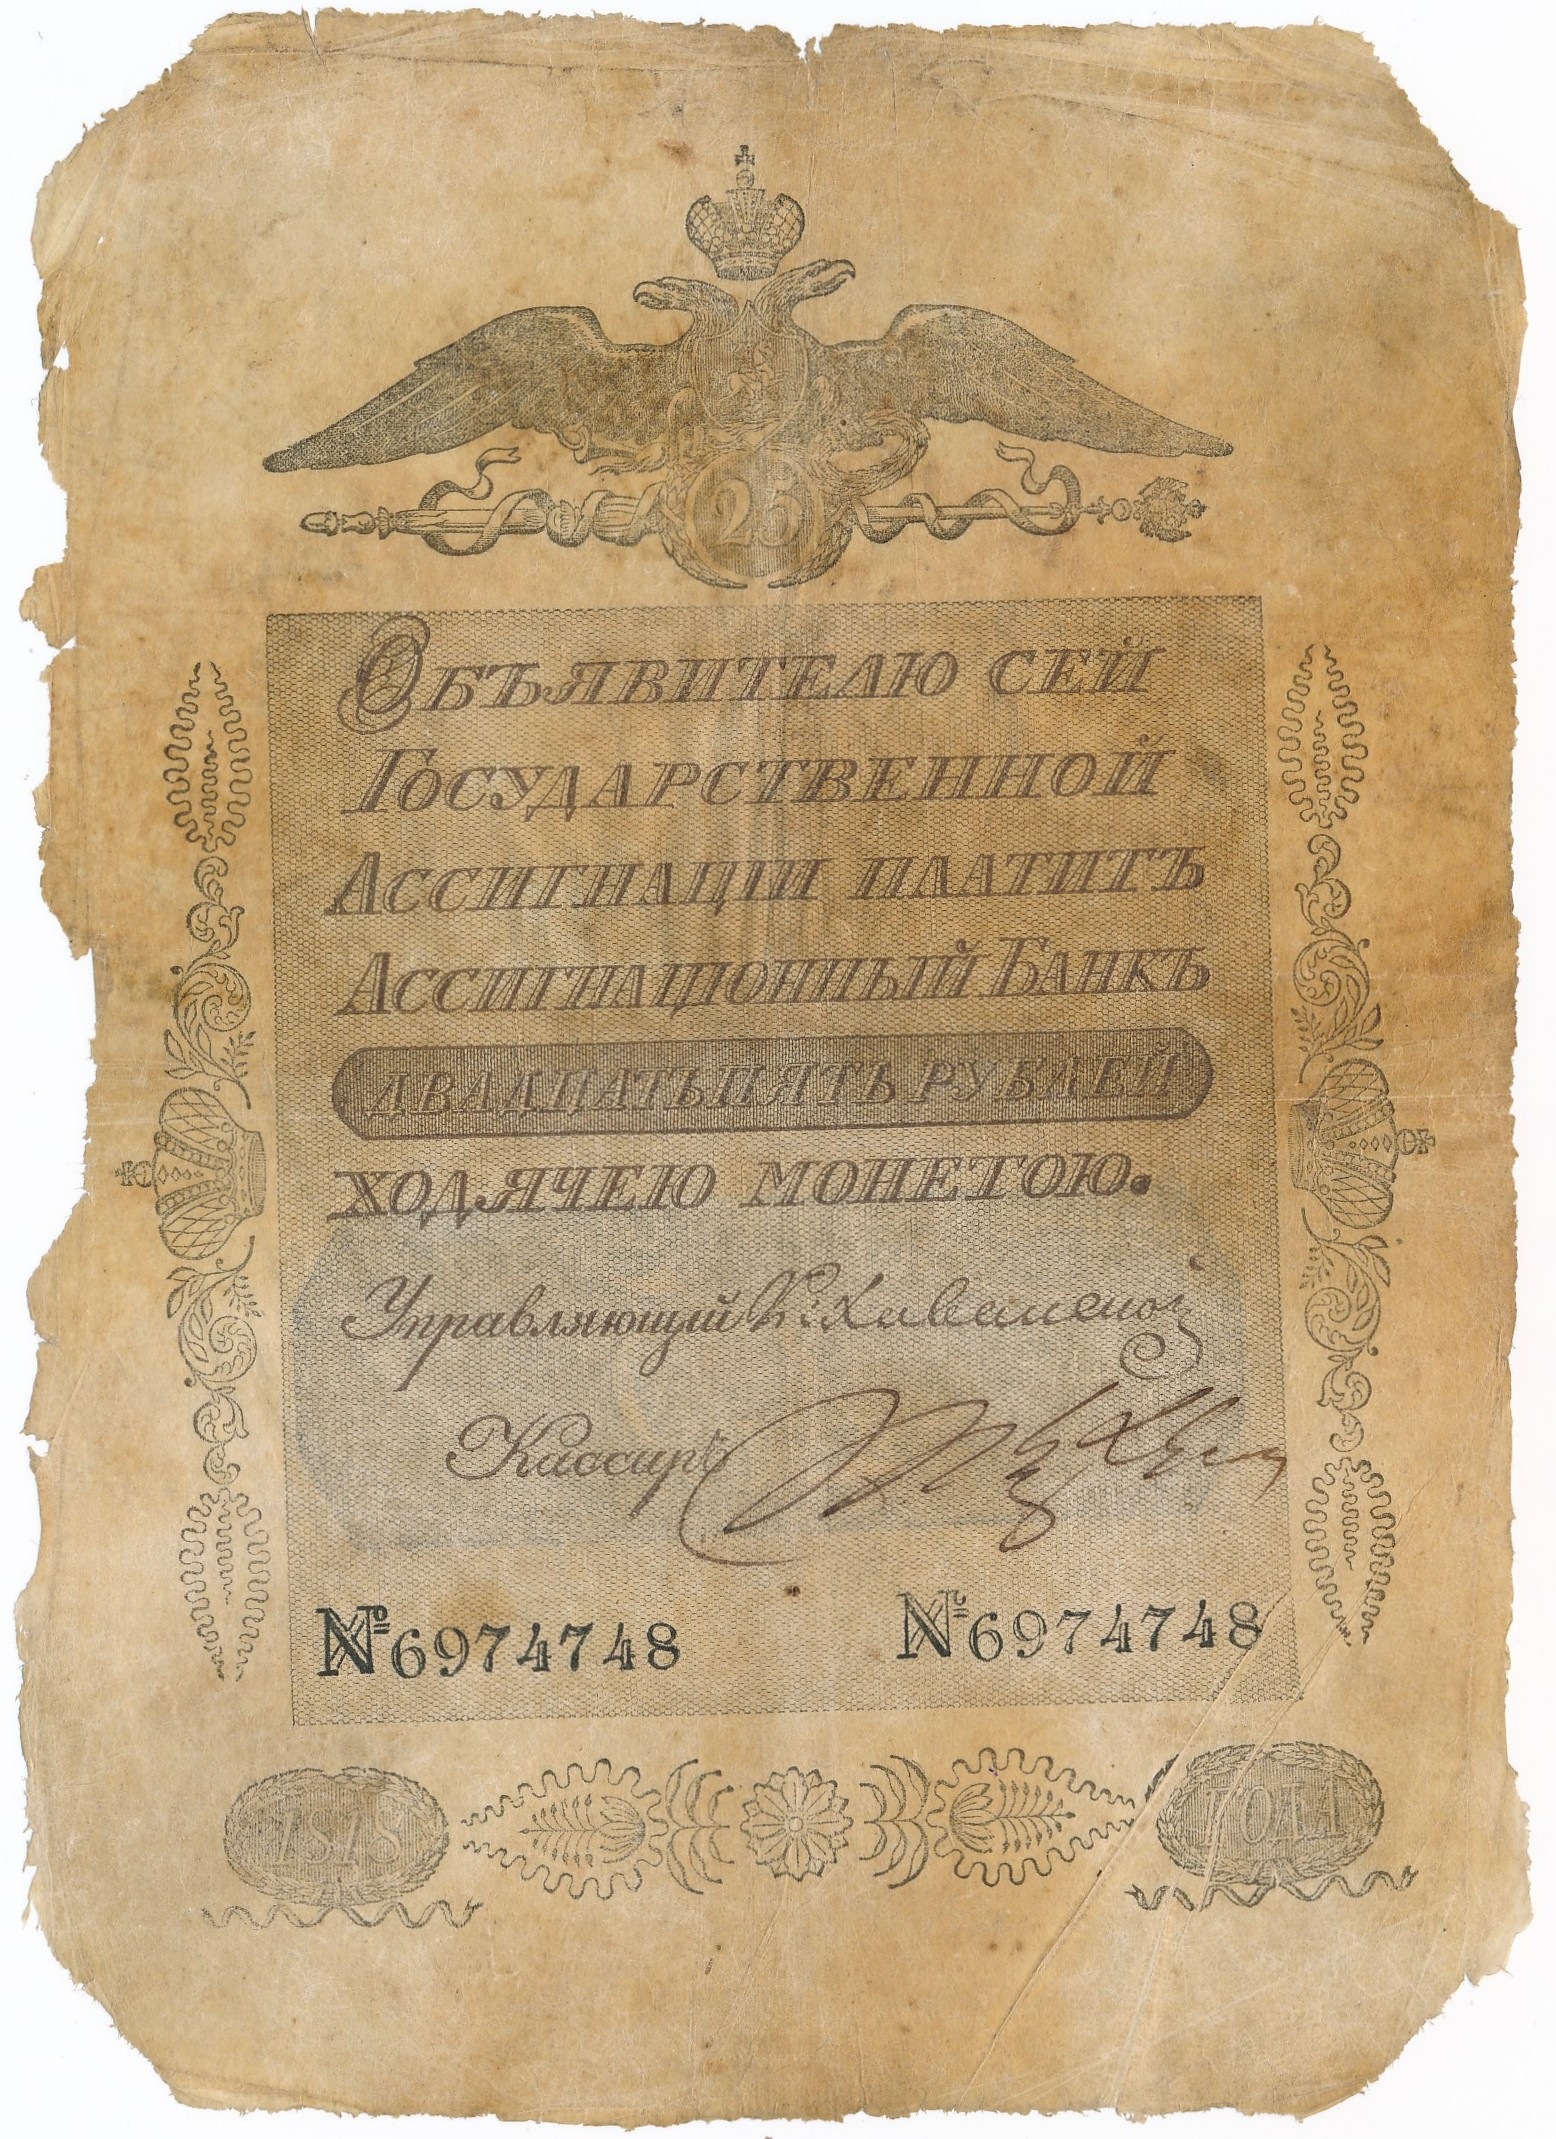 25
Объявителю сей
Государственной
Ассигнаціи платитъ
Ассигнаціонный Банкъ
двадцатьпять рублей
ходячею монетою.
Управляющій
Кассиръ
№6974748 №6974748
1818 года